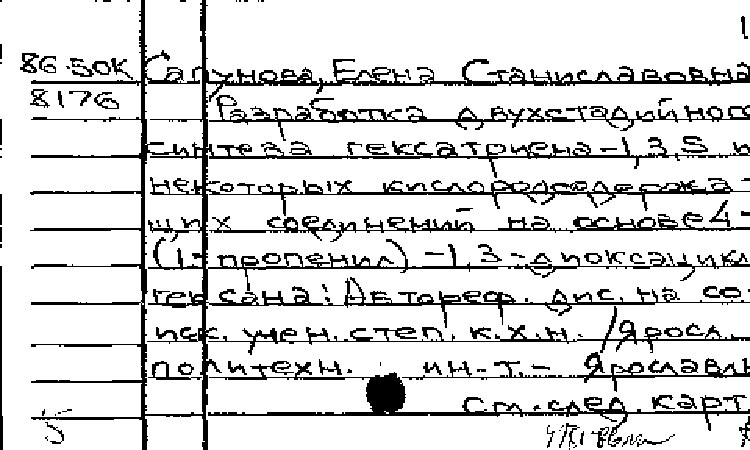 86.50К Сапунова, Елена Станиславовна
8176 Разработка двухстадийного
синтеза гексатриена-1,3,5 и
некоторых кислородсодержа-
щих соединений на основе 4-
(1-пропенил)-1,3-диоксацикло
гексана: Автореф. дис. на со
иск. учен. степ. к.х.н. / Яросл.
политехн. ин-т. - Ярославль
См. след. карт
5